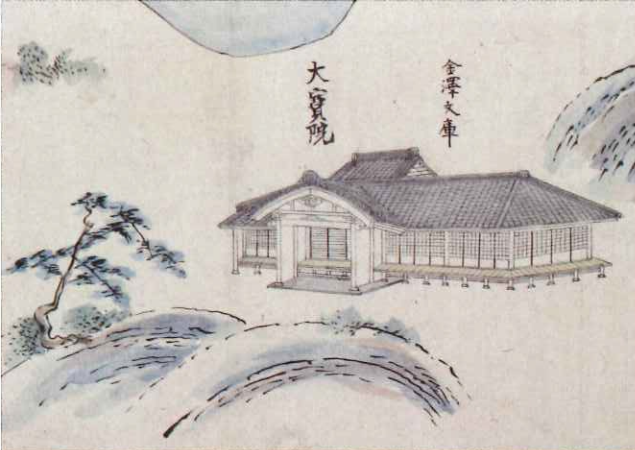 金澤文庫
大寳院